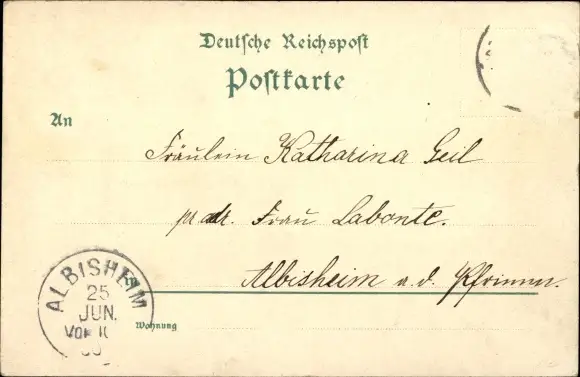 Deutsche Reichspost
Postkarte
An
Fräulein Katharina Geil
pr adr. Frau Labonte.
Albisheim a. d. Pfrimm.
ALBISHEIM
25
JUN.
Wohnung